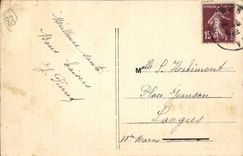 Meilleure santé
Bons baisers
Melle S. Habémont
Place Jeanson
Langres
Hte Marne
15